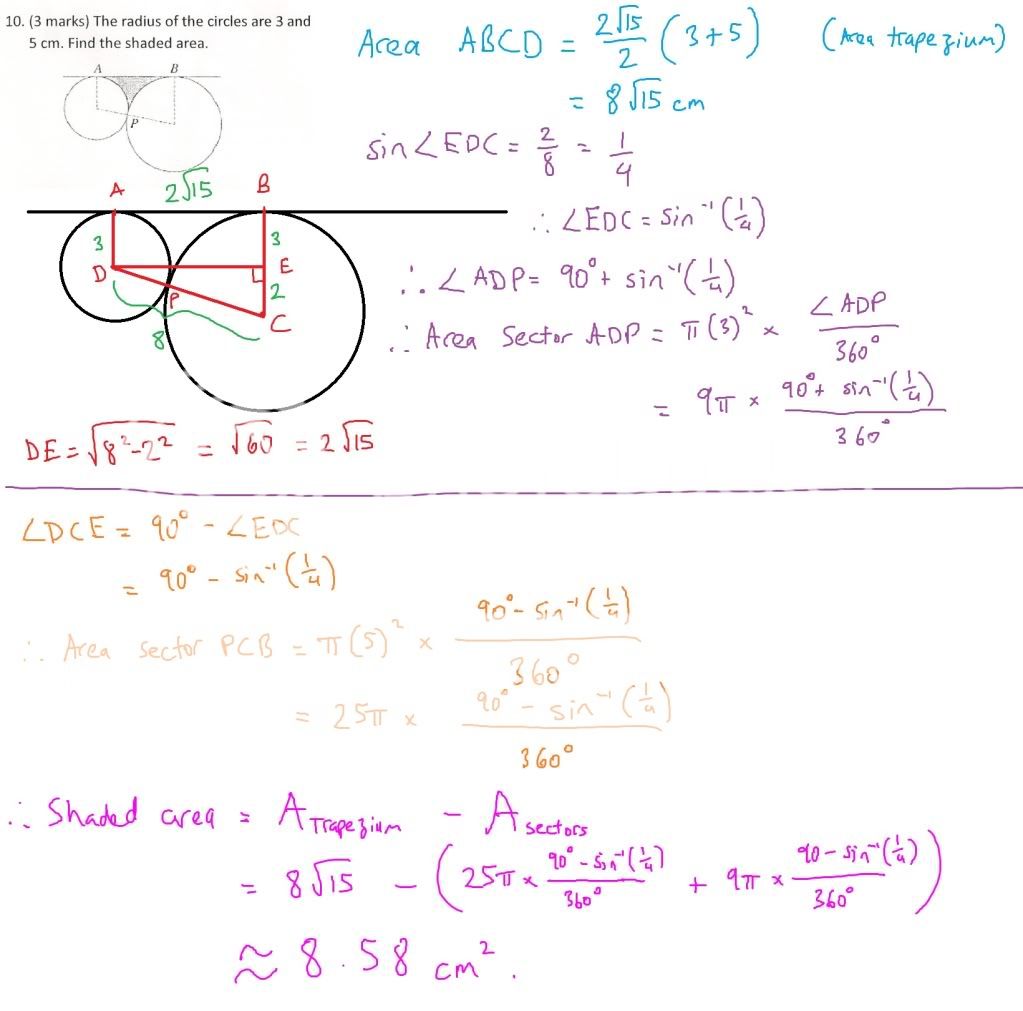 10. (3 marks) The radius of the circles are 3 and
5 cm. Find the shaded area.
A B
P
A 2√15 B
3 3
D E
P 2
8 C
DE = √(8²-2²) = √60 = 2√15
Area ABCD = 2√15/2 (3+5) (Area trapezium)
= 8√15 cm
sin∠EDC = 2/8 = 1/4
∴ ∠EDC = sin⁻¹(1/4)
∴ ∠ADP = 90° + sin⁻¹(1/4)
∴ Area Sector ADP = π(3)² × ∠ADP/360°
= 9π × (90° + sin⁻¹(1/4))/360°
∠DCE = 90° - ∠EDC
= 90° - sin⁻¹(1/4)
∴ Area sector PCB = π(5)² × (90° - sin⁻¹(1/4))/360°
= 25π × (90° - sin⁻¹(1/4))/360°
∴ Shaded area = A Trapezium - A sectors
= 8√15 - (25π × (90° - sin⁻¹(1/4))/360° + 9π × (90 - sin⁻¹(1/4))/360°)
≈ 8.58 cm².